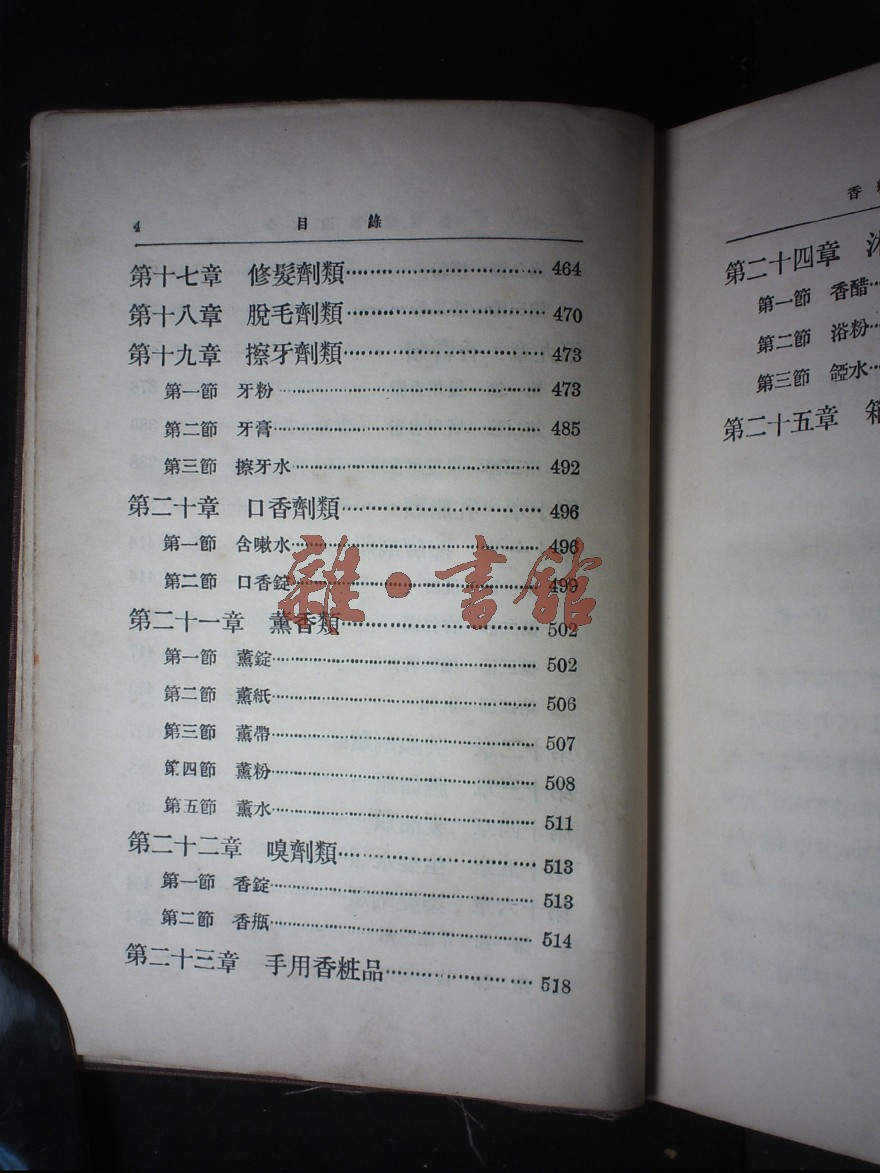 4 目錄
第十七章 修髮劑類 464
第十八章 脫毛劑類 470
第十九章 擦牙劑類 473
第一節 牙粉 473
第二節 牙膏 485
第三節 擦牙水 492
第二十章 口香劑類 496
第一節 含嗽水 496
第二節 口香錠 499
第二十一章 薰香類 502
第一節 薰錠 502
第二節 薰紙 506
第三節 薰帶 507
第四節 薰粉 508
第五節 薰水 511
第二十二章 嗅劑類 513
第一節 香錠 513
第二節 香瓶 514
第二十三章 手用香粧品 518
雜·書館
香
第二十四章
第一節 香醋
第二節 浴粉
第三節 水
第二十五章